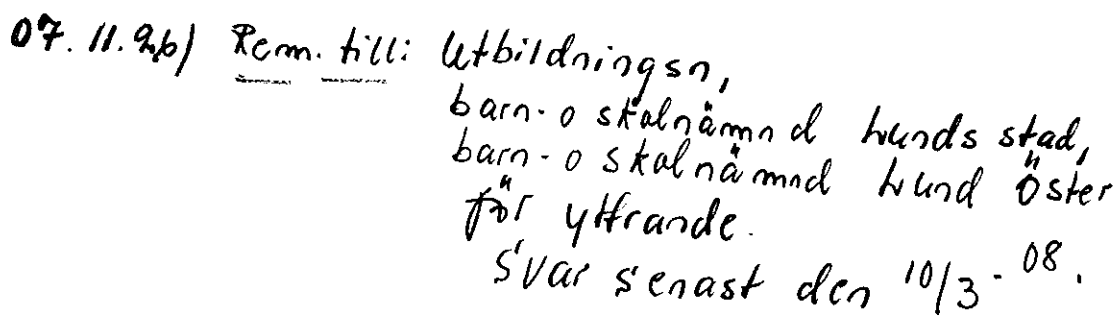 07.11.26) Rem. till: Utbildningsn,
barn- o skolnämnd Lunds stad,
barn- o skolnämnd Lund Öster
för yttrande.
Svar senast den 10/3 - 08.